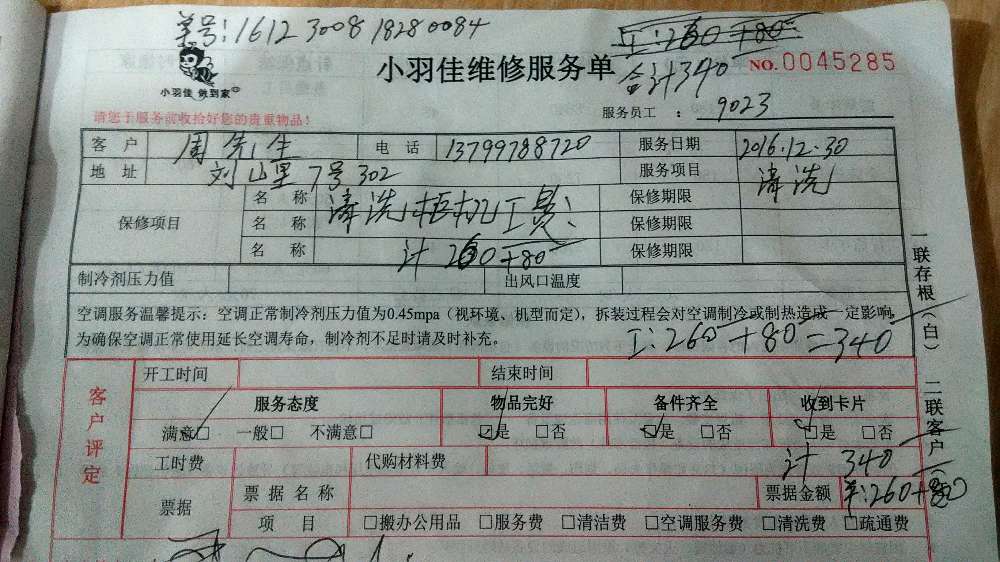 单号:1612 3008 18280084
工:260+80
合计340
小羽佳 做到家
小羽佳维修服务单
NO.0045285
服务员工 : 9023
请您于服务前收拾好您的贵重物品!
客 户 周先生 电 话 13799788720 服务日期 2016.12.30
地 址 刘山里7号302 服务项目 清洗
保修项目
名 称 清洗柜机工费: 保修期限
名 称 保修期限
名 称 计260+80 保修期限
制冷剂压力值 出风口温度
空调服务温馨提示:空调正常制冷剂压力值为0.45mpa(视环境、机型而定),拆装过程会对空调制冷或制热造成一定影响,
为确保空调正常使用延长空调寿命,制冷剂不足时请及时补充。
工:260+80=340
一联存根(白) 二联客户
客户评定
开工时间 结束时间
服务态度 物品完好 备件齐全 收到卡片
满意□ 一般□ 不满意□ ☑是 □否 ☑是 □否 ☑是 □否
工时费 代购材料费 计 340
票据 票 据 名 称 票据金额 单:260+80
项 目 □搬办公用品 □服务费 □清洁费 □空调服务费 □清洗费 □疏通费